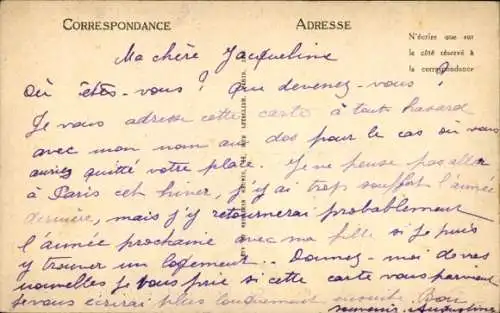 CORRESPONDANCE ADRESSE
N'écrire que sur
le côté réservé à
la correspondance
Ma chère Jacqueline
Où êtes-vous? Que devenez-vous?
Je vous adresse cette carte à tout hasard
avec mon nom au dos pour le cas où vous
auriez quitté votre place. Je ne pense pas aller
à Paris cet hiver, j'y ai trop souffert l'année
dernière, mais j'y retournerai probablement
l'année prochaine avec ma fille si je puis
y trouver un logement.. Donnez-moi de vos
nouvelles je vous prie si cette carte vous parvient
je vous écrirai plus longuement ensuite. Bon
souvenir. Augustine